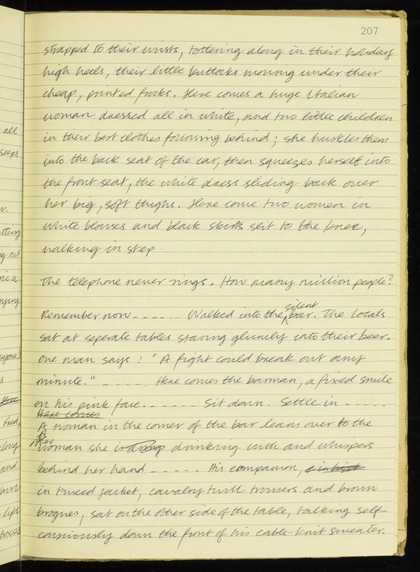 207
strapped to their wrists, tottering along in their holiday
high heels, their little buttocks moving under their
cheap, printed frocks. Here comes a huge Italian
woman dressed all in white, and two little children
in their best clothes following behind; she hustles them
into the back seat of the car, then squeezes herself into
the front seat, the white dress sliding back over
her big, soft thighs. Here come two women in
white blouses and black skirts slit to the knee,
walking in step
The telephone never rings. How many million people?
Remember now ----- Walked into the silent bar. The locals
sat at seperate tables staring glumly into their beer.
One man says: "A fight could break out any
minute." ----- Here comes the barman, a fixed smile
on his pink face ----- Sit down. Settle in -----
Here comes
A woman in the corner of the bar leans over to the
woman she is drinking with and whispers
behind her hand ----- His companion,
in tweed jacket, cavalry twill trousers and brown
brogues, sat on the other side of the table, talking self-
consciously down the front of his cable-knit sweater.
all